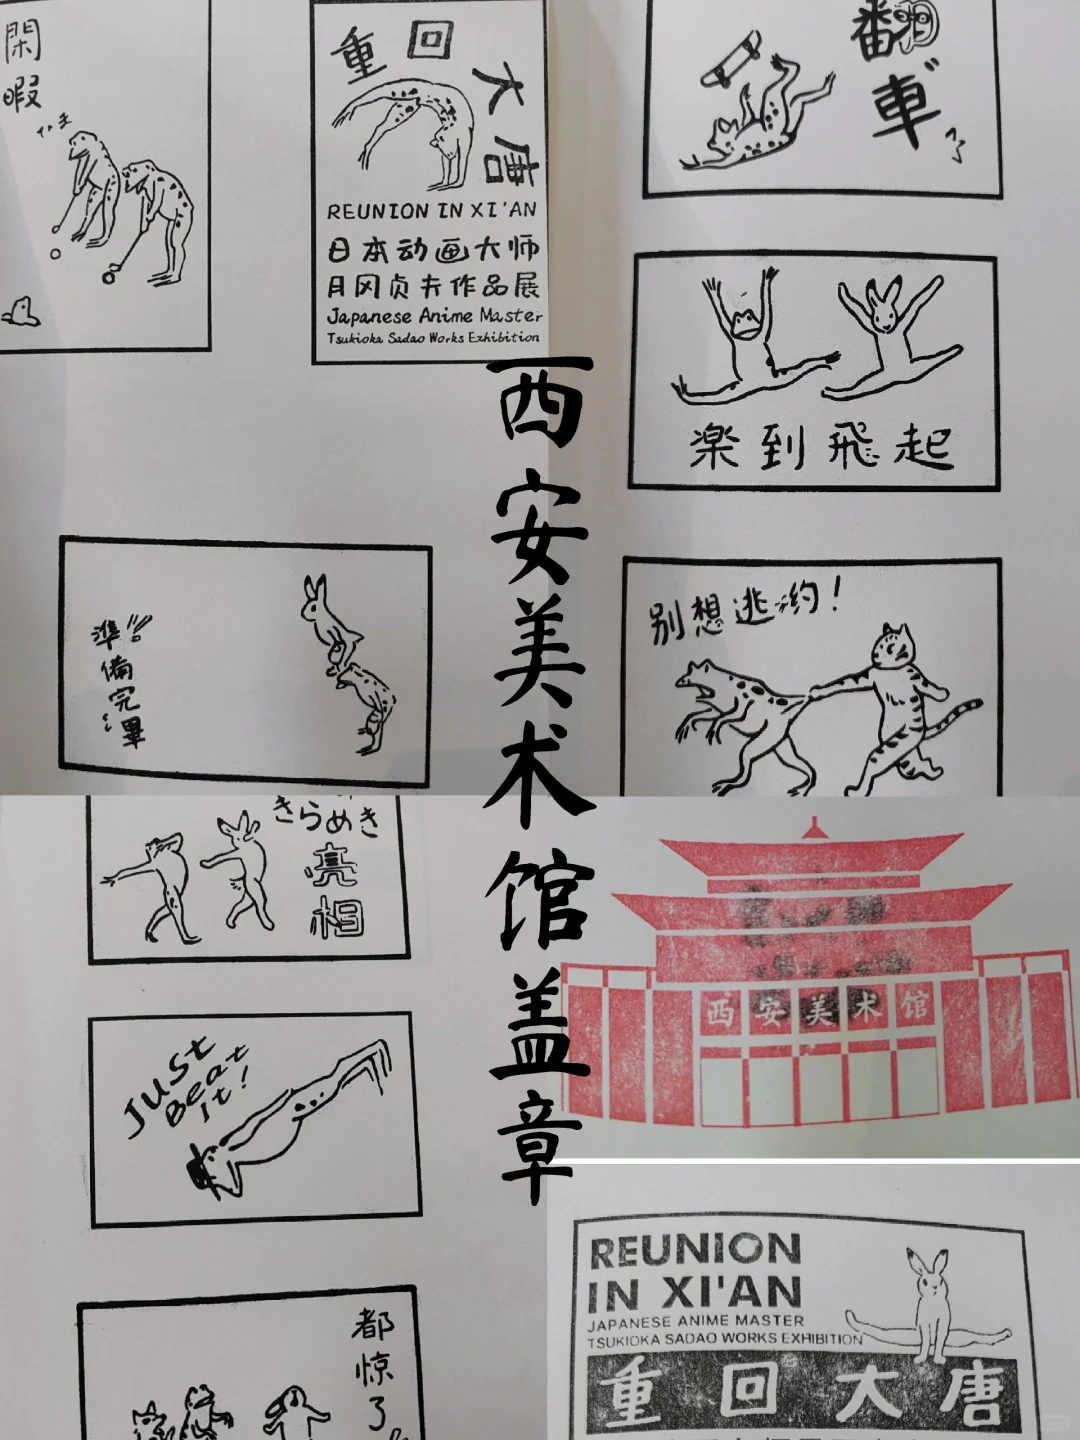 閑暇
重回大唐
REUNION IN XI'AN
日本动画大师
月冈贞夫作品展
Japanese Anime Master
Tsukioka Sadao Works Exhibition
翻車
楽到飛起
西安美术馆盖章
準備完畢
别想逃约！
きらめき
亮相
Just
Beat
It!
都惊了
西安美术馆
REUNION
IN XI'AN
JAPANESE ANIME MASTER
TSUKIOKA SADAO WORKS EXHIBITION
重回大唐